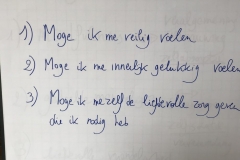 1) Moge ik me veilig voelen
2) Moge ik me innerlijk gelukkig voelen
3) Moge ik mezelf de liefdevolle zorg geven
die ik nodig heb